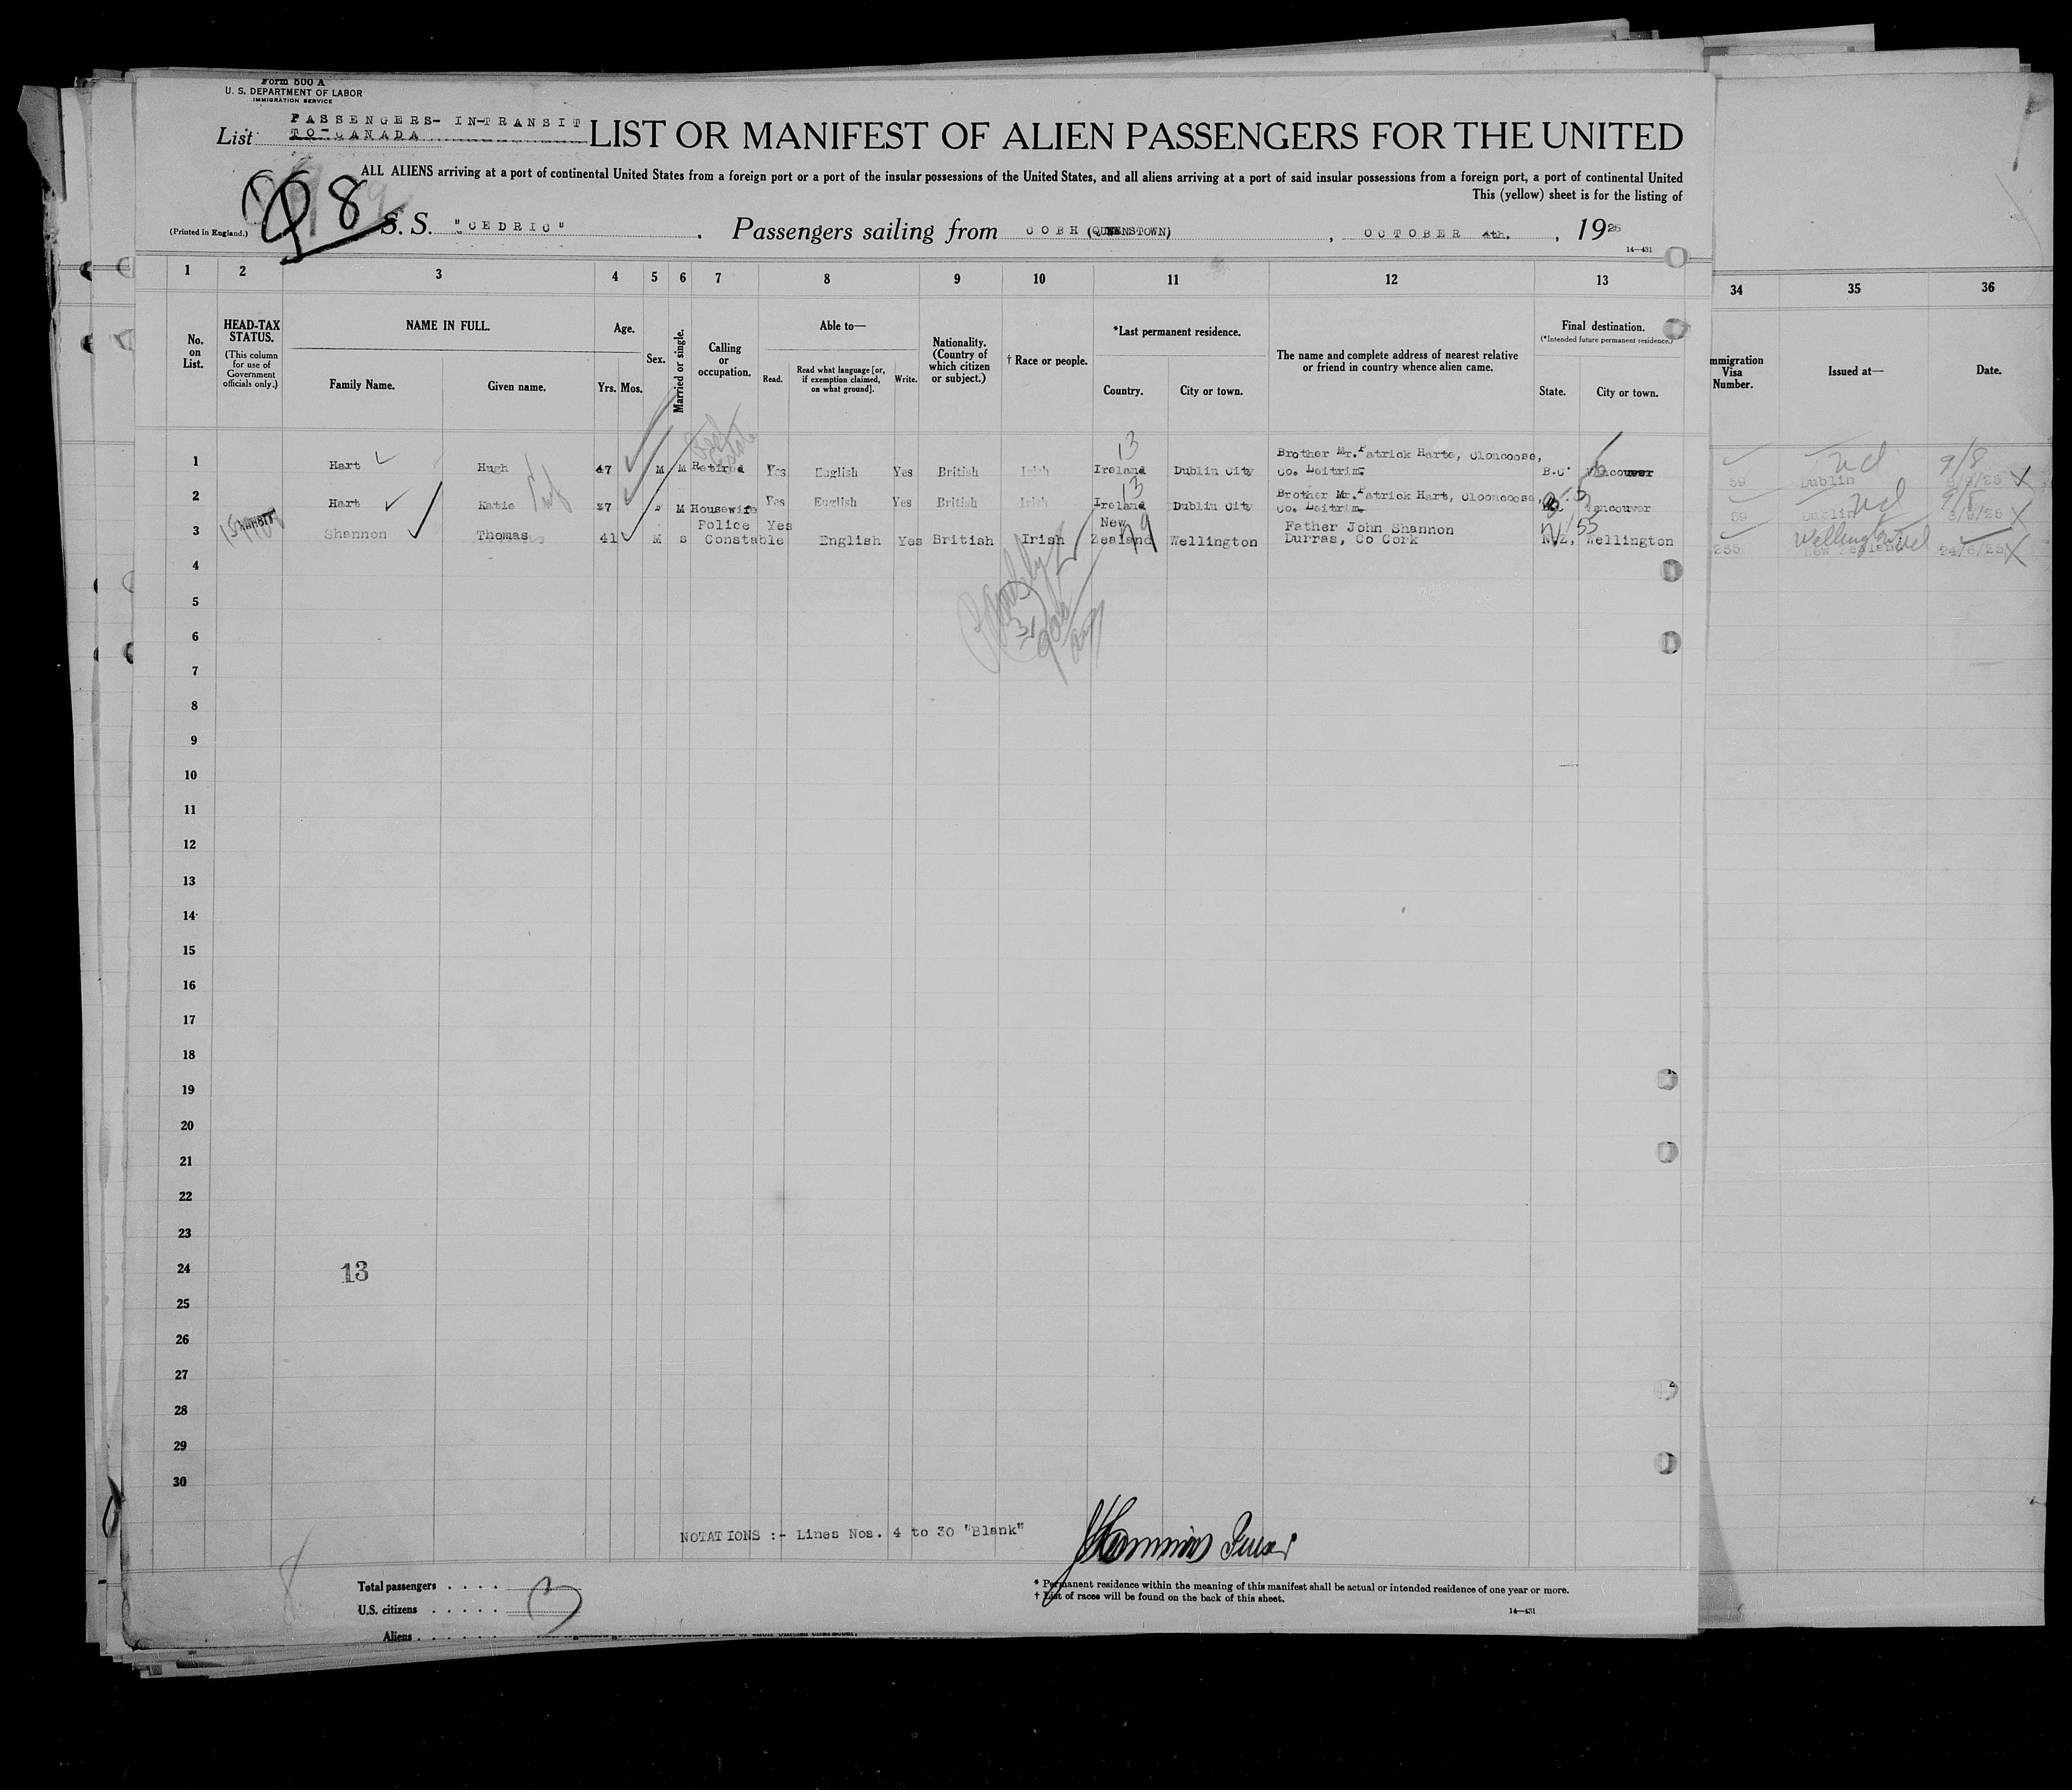 Form 500 A
U. S. DEPARTMENT OF LABOR
IMMIGRATION SERVICE
List PASSENGERS-IN-TRANSIT
TO-CANADA
LIST OR MANIFEST OF ALIEN PASSENGERS FOR THE UNITED
ALL ALIENS arriving at a port of continental United States from a foreign port or a port of the insular possessions of the United States, and all aliens arriving at a port of said insular possessions from a foreign port, a port of continental United
This (yellow) sheet is for the listing of
8
(Printed in England.)
S. S. "CEDRIC". Passengers sailing from COBH (QUEENSTOWN), OCTOBER 4th., 1925
14—431
1 2 3 4 5 6 7 8 9 10 11 12 13 34 35 36
No. on List.
HEAD-TAX STATUS.
(This column for use of Government officials only.)
NAME IN FULL.
Family Name. Given name.
Age.
Yrs. Mos.
Sex.
Married or single.
Calling or occupation.
Able to—
Read. Read what language [or, if exemption claimed, on what ground]. Write.
Nationality. (Country of which citizen or subject.)
† Race or people.
*Last permanent residence.
Country. City or town.
The name and complete address of nearest relative or friend in country whence alien came.
Final destination.
(*Intended future permanent residence.)
State. City or town.
mmigration Visa Number.
Issued at—
Date.
Real Estate
13
1 Hart Hugh 47 M M Retired Yes English Yes British Irish Ireland Dublin City Brother Mr. Patrick Harte, Cloncoose, Co. Leitrim. B.C. Vancouver 59 Dublin
9/8
13
2 Hart Katie 37 F M Housewife Yes English Yes British Irish Ireland Dublin City Brother Mr. Patrick Hart, Clooncoose, Co. Leitrim. Vancouver 59 Dublin
3 Shannon Thomas 41 M S Police Constable Yes English Yes British Irish New Zealand Wellington Father John Shannon Durras, Co Cork N.Z, Wellington 255 Wellington New Zealand 24/6/25
79
55
4
5
6
7
8
9
10
11
12
13
14
15
16
17
18
19
20
21
22
23
24
13
25
26
27
28
29
30
NOTATIONS :- Lines Nos. 4 to 30 "Blank"
Purser
Total passengers . . . .
U.S. citizens . . . . .
3
Aliens . . . . . .
* Permanent residence within the meaning of this manifest shall be actual or intended residence of one year or more.
† List of races will be found on the back of this sheet.
14—431
8